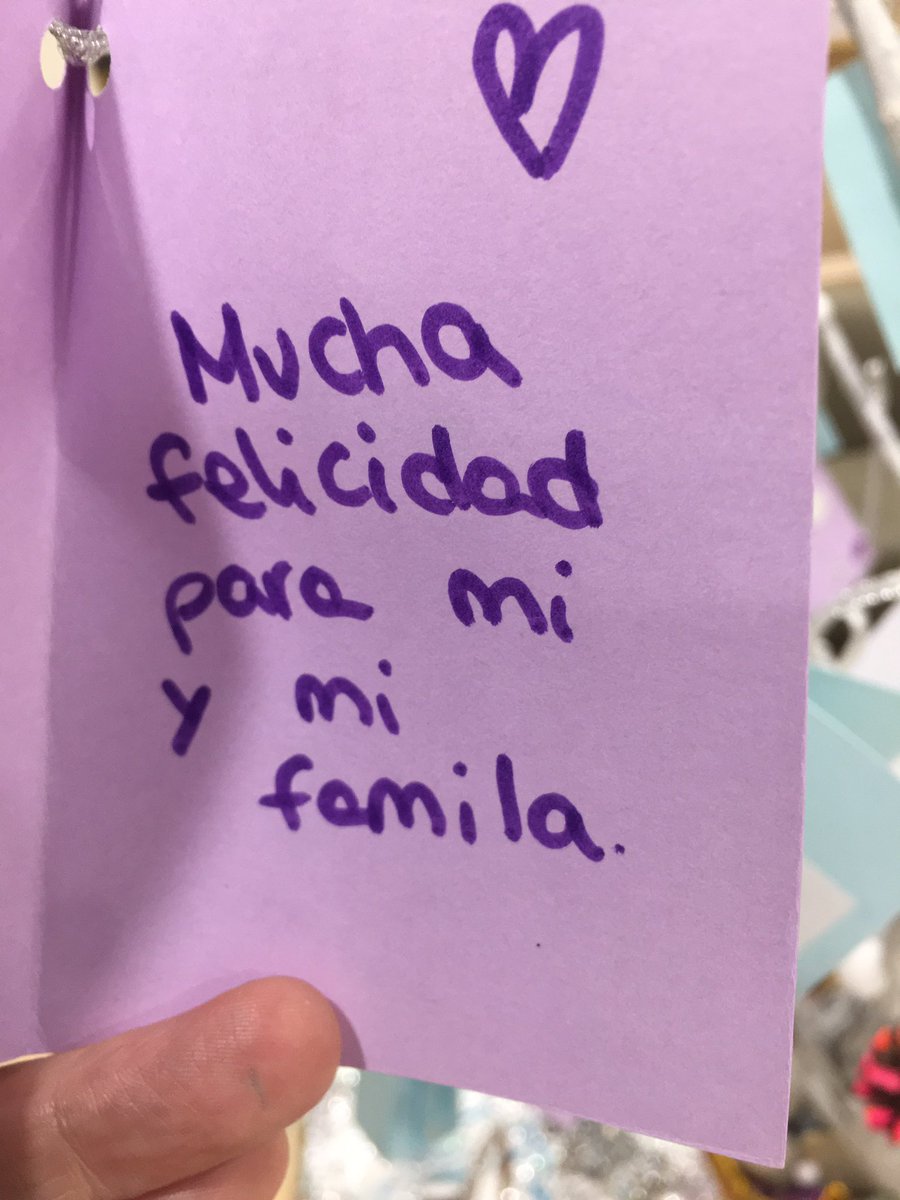 Mucha
felicidad
para mi
y mi
famila.